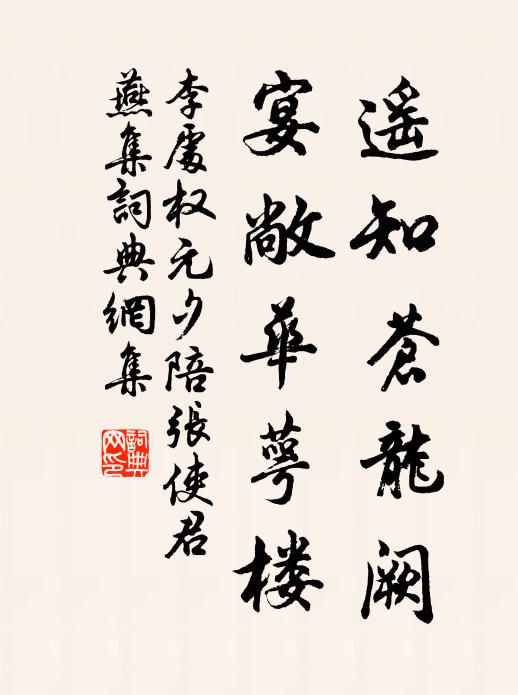 遥知蒼龍阙
宴敞華萼楼
李處权元夕陪張使君
燕集詞典網集
詞典網印